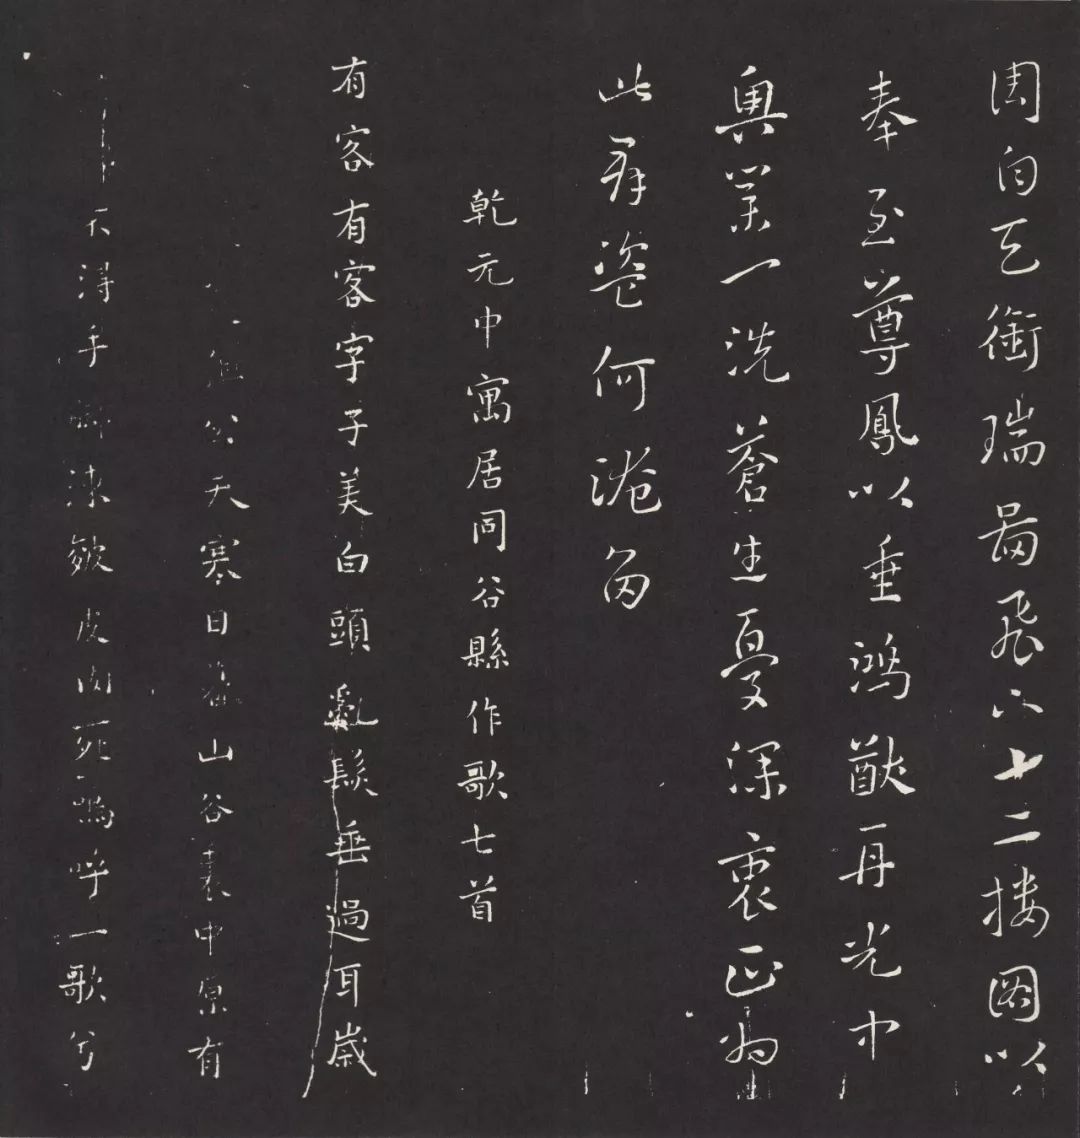 周自天銜瑞啚飛下十二樓圖以
奉至尊鳳以垂鴻猷再光中
興業一洗蒼生憂深衷正為
此群盜何淹留
乾元中寓居同谷縣作歌七首
有客有客字子美白頭亂髮垂過耳歲
狙公天寒日暮山谷裏中原有
不得手腳凍皴皮肉死嗚呼一歌兮